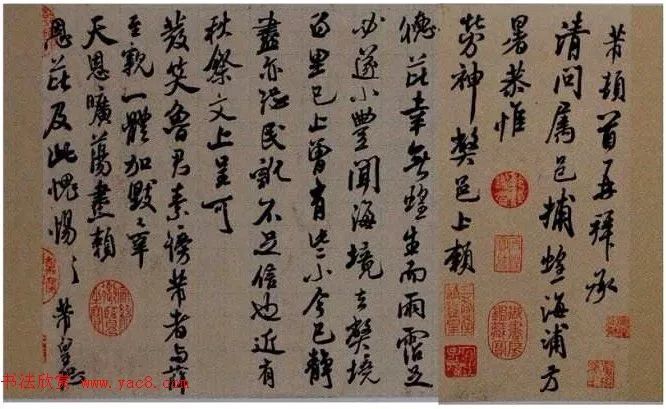 芾頓首再拜承
清問属邑捕蝗海浦方
暑恭惟
勞神弊邑上賴
德芘幸無蝗生而雨露足
必遂小豐聞海境去弊境
百里已上曾有些小今已靜
盡亦恐民訛不足信也近有
秋祭文上呈可
發笑魯君素謗芾者与薛
至親一體加毀幸
天恩曠蕩盡賴
恩芘及此愧惕々芾皇恐
书法欣赏 www.yac8.com